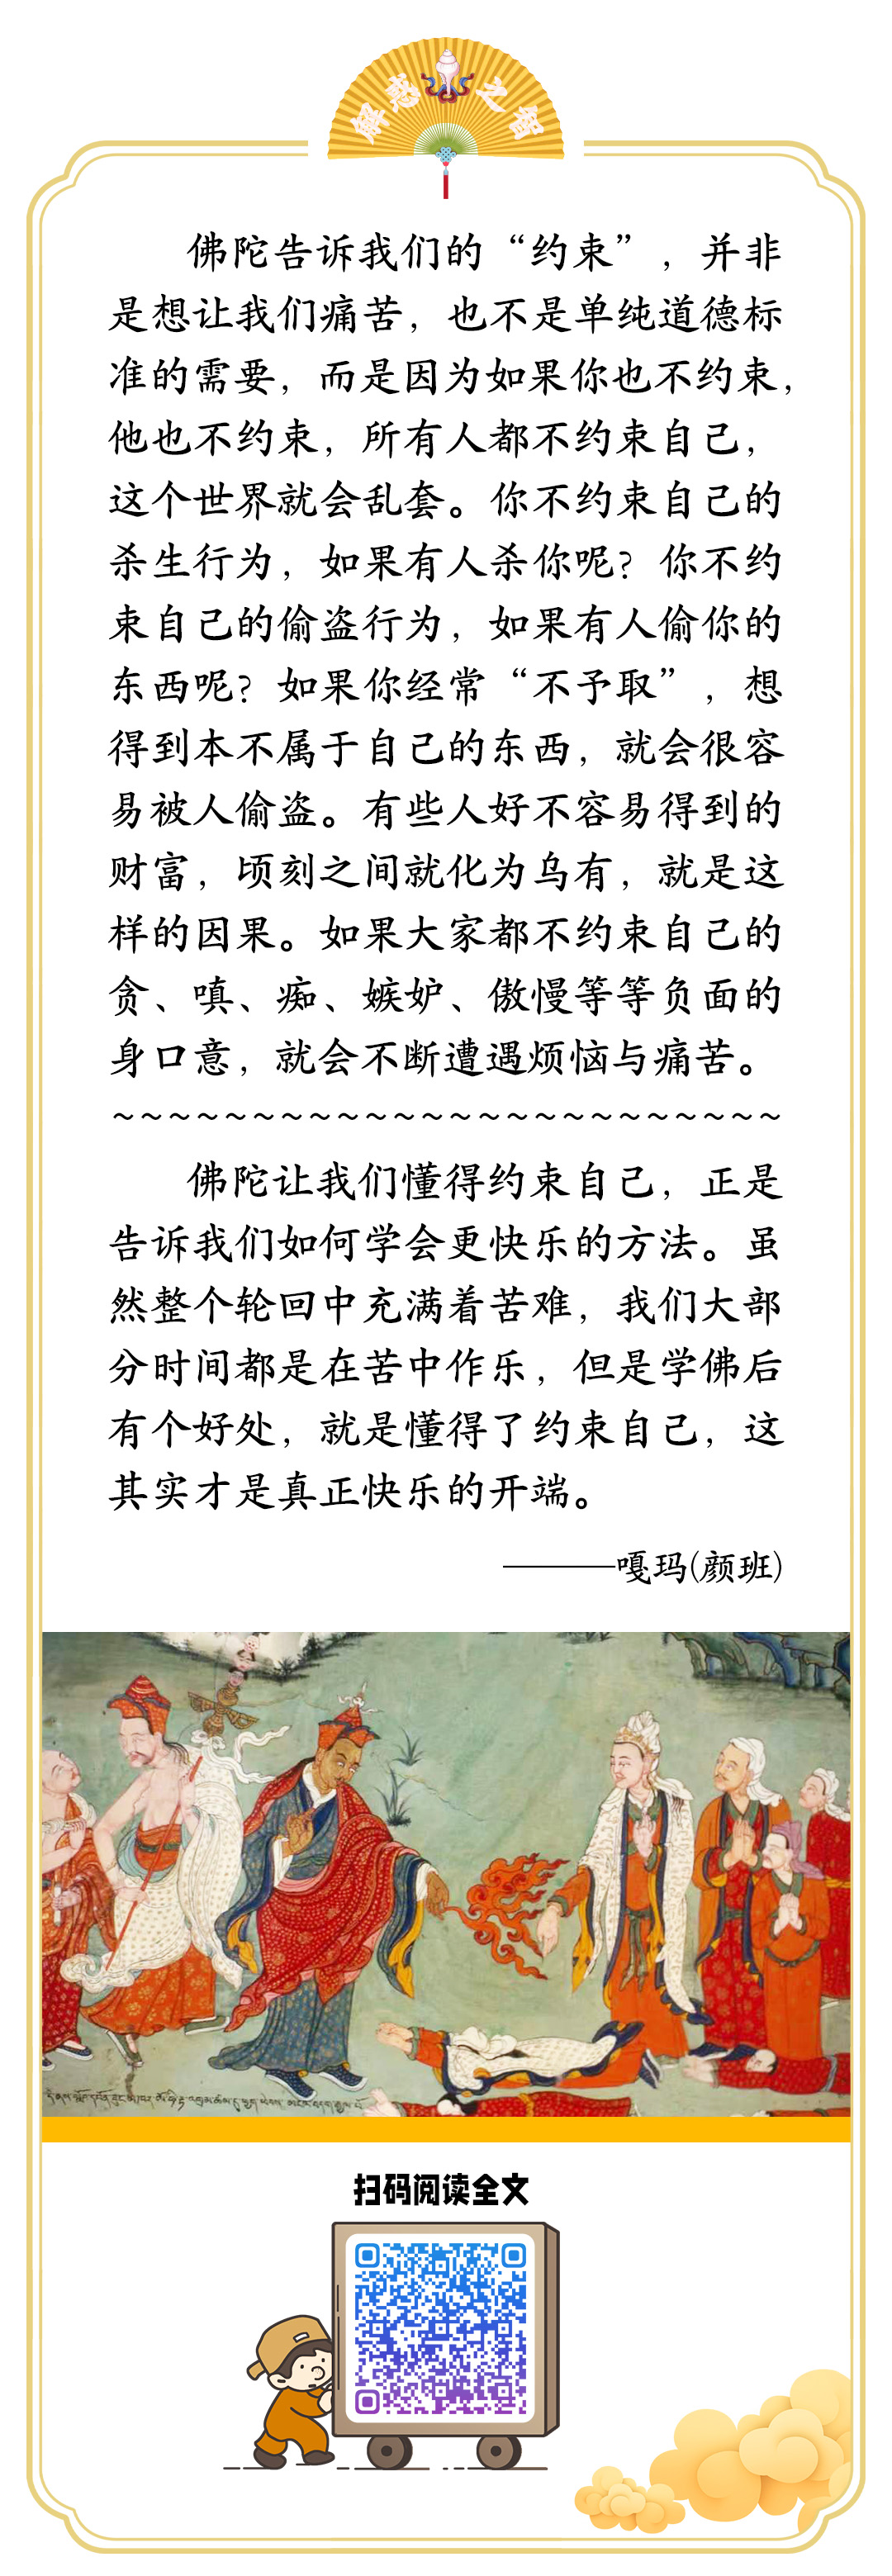 解惑之智
佛陀告诉我们的“约束”，并非
是想让我们痛苦，也不是单纯道德标
准的需要，而是因为如果你也不约束，
他也不约束，所有人都不约束自己，
这个世界就会乱套。你不约束自己的
杀生行为，如果有人杀你呢？你不约
束自己的偷盗行为，如果有人偷你的
东西呢？如果你经常“不予取”，想
得到本不属于自己的东西，就会很容
易被人偷盗。有些人好不容易得到的
财富，顷刻之间就化为乌有，就是这
样的因果。如果大家都不约束自己的
贪、嗔、痴、嫉妒、傲慢等等负面的
身口意，就会不断遭遇烦恼与痛苦。
~~~~~~~~~~~~~~~~~~~~~~~~
佛陀让我们懂得约束自己，正是
告诉我们如何学会更快乐的方法。虽
然整个轮回中充满着苦难，我们大部
分时间都是在苦中作乐，但是学佛后
有个好处，就是懂得了约束自己，这
其实才是真正快乐的开端。
———嘎玛(颜班)
扫码阅读全文